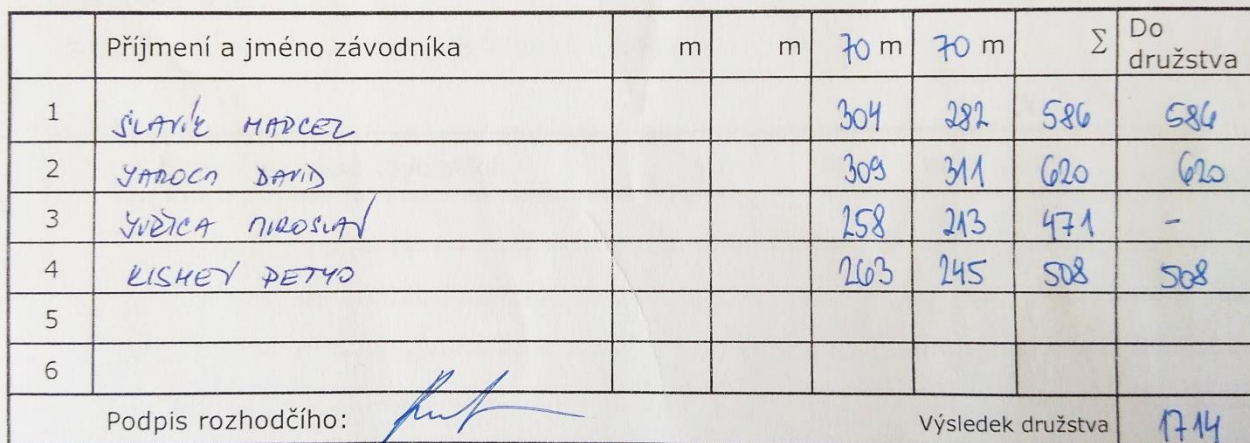 Příjmení a jméno závodníka m m 70 m 70 m Σ Do družstva
1 SLAVÍK MARCEL 304 282 586 586
2 DAVID 309 311 620 620
3 MIROSLAV 258 213 471 -
4 KISHEV PETYO 263 245 508 508
5
6
Podpis rozhodčího: Výsledek družstva 1714